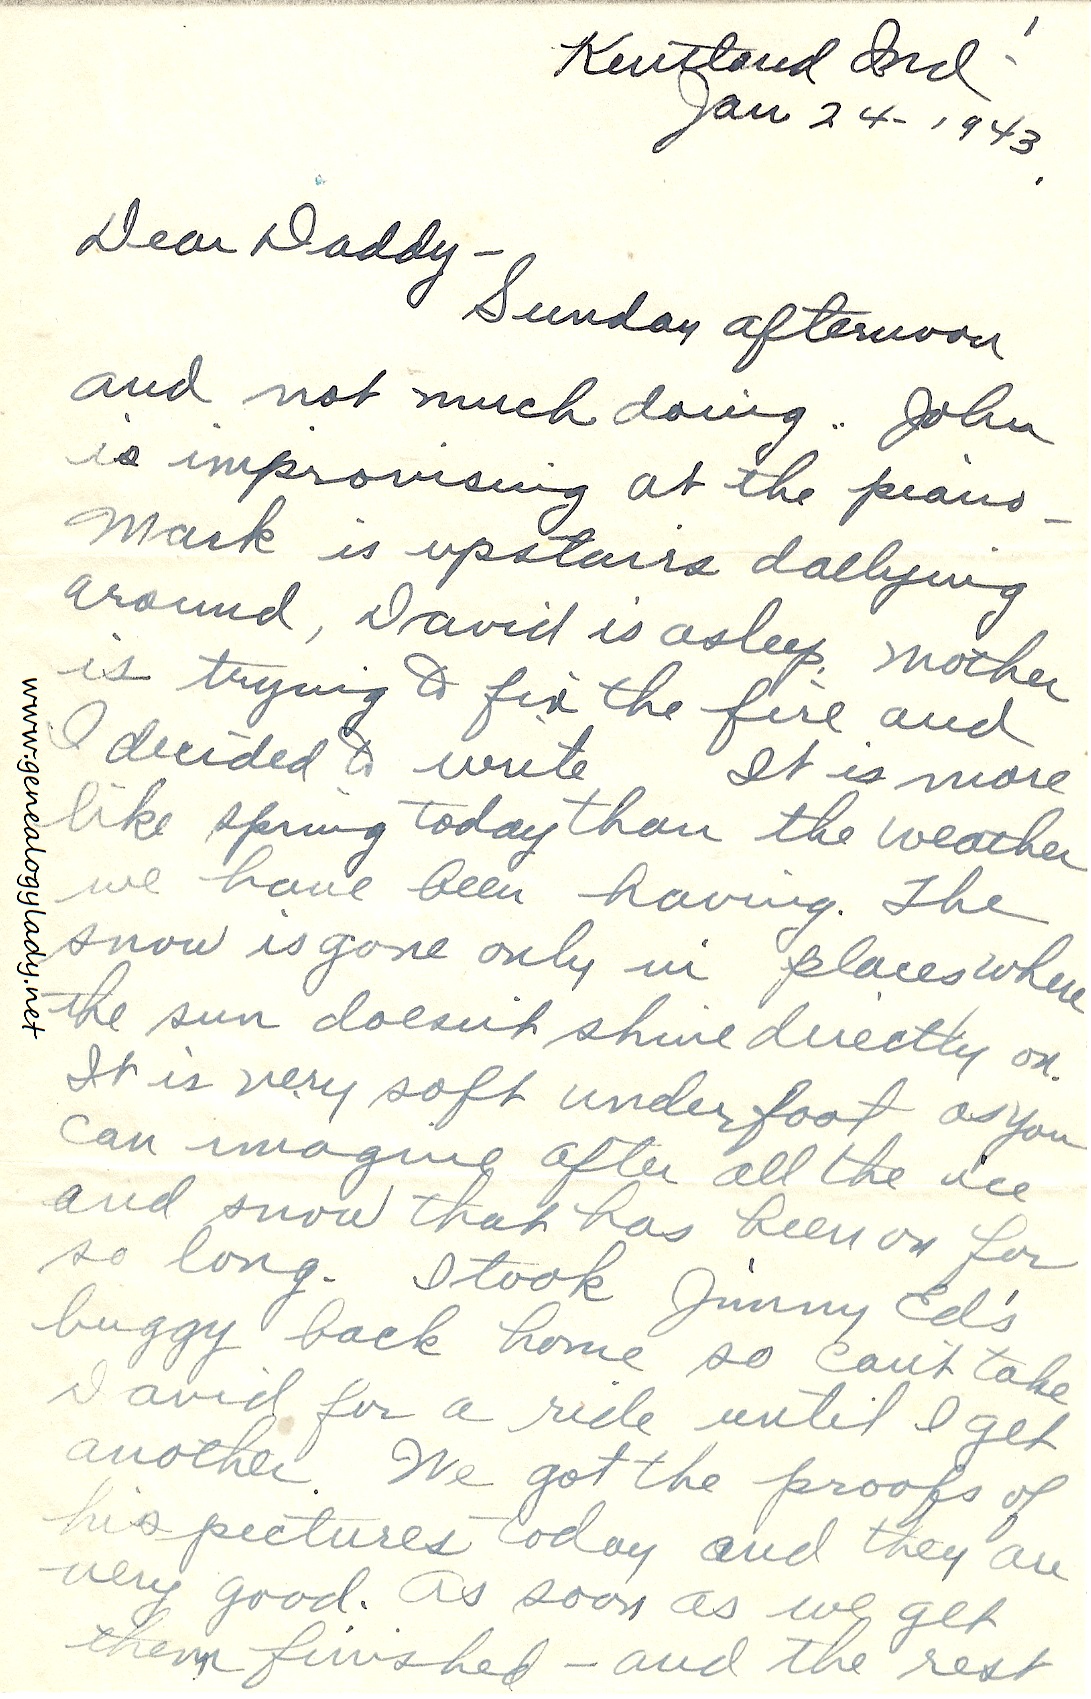 Kentland Ind.
Jan 24-1943.
Dear Daddy-
Sunday afternoon
and not much doing.. John
is improvising at the piano -
Mark is upstairs dallying
around, David is asleep, Mother
is trying to fix the fire and
I decided to write It is more
like spring today than the weather
we have been having. The
snow is gone only in places where
the sun doesn't shine directly on.
It is very soft underfoot as you
can imagine after all the ice
and snow that has been on for
so long. I took Jimmy Ed's
buggy back home so can't take
David for a ride until I get
another. We got the proofs of
his pictures today and they are
very good. As soon as we get
them finished - and the rest
www.genealogylady.net